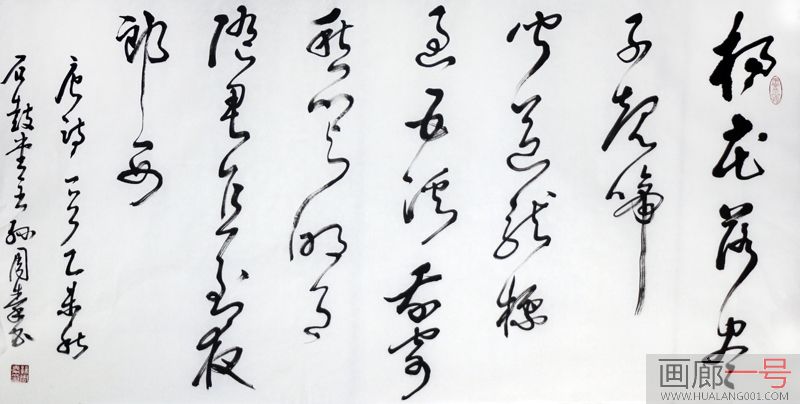 杨花落尽
子规啼
闻道龙标
过五溪我寄
愁心与明月
随君直到夜
郎西
唐诗一首乙未秋
石鼓堂主孙周豪书
画廊一号
WWW.HUALANG001.COM